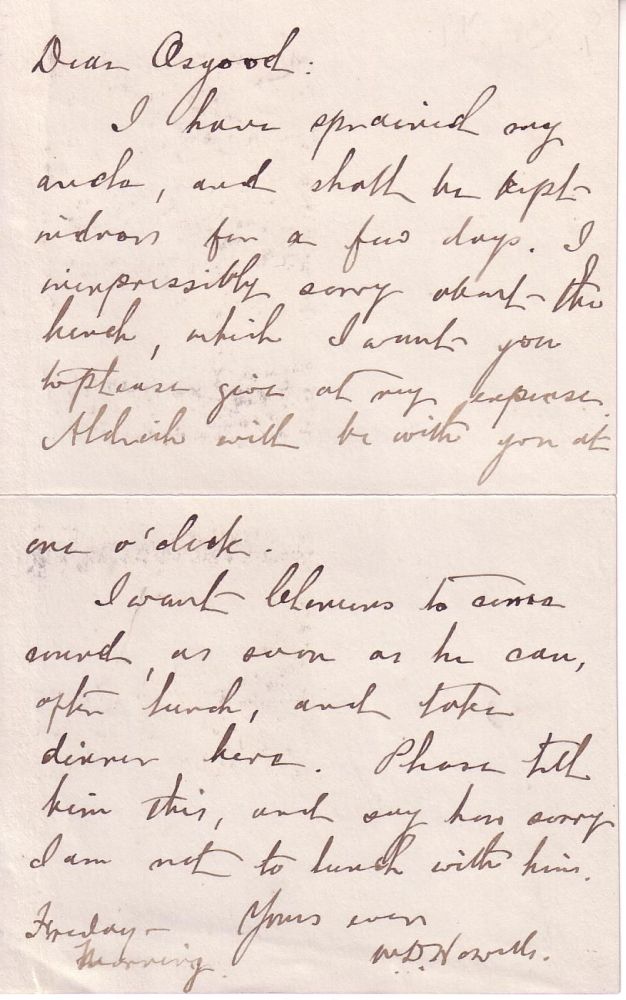 Dear Osgood:
I have sprained my
ancle, and shall be kept
indoors for a few days. I
inexpressibly sorry about the
lunch, which I want you
to please give at my expense.
Aldrich will be with you at
one o'clock.
I want Clemens to come
round, as soon as he can,
after lunch, and take
dinner here. Please tell
him this, and say how sorry
I am not to lunch with him.
Yours ever
W.D. Howells.
Friday
Morning.